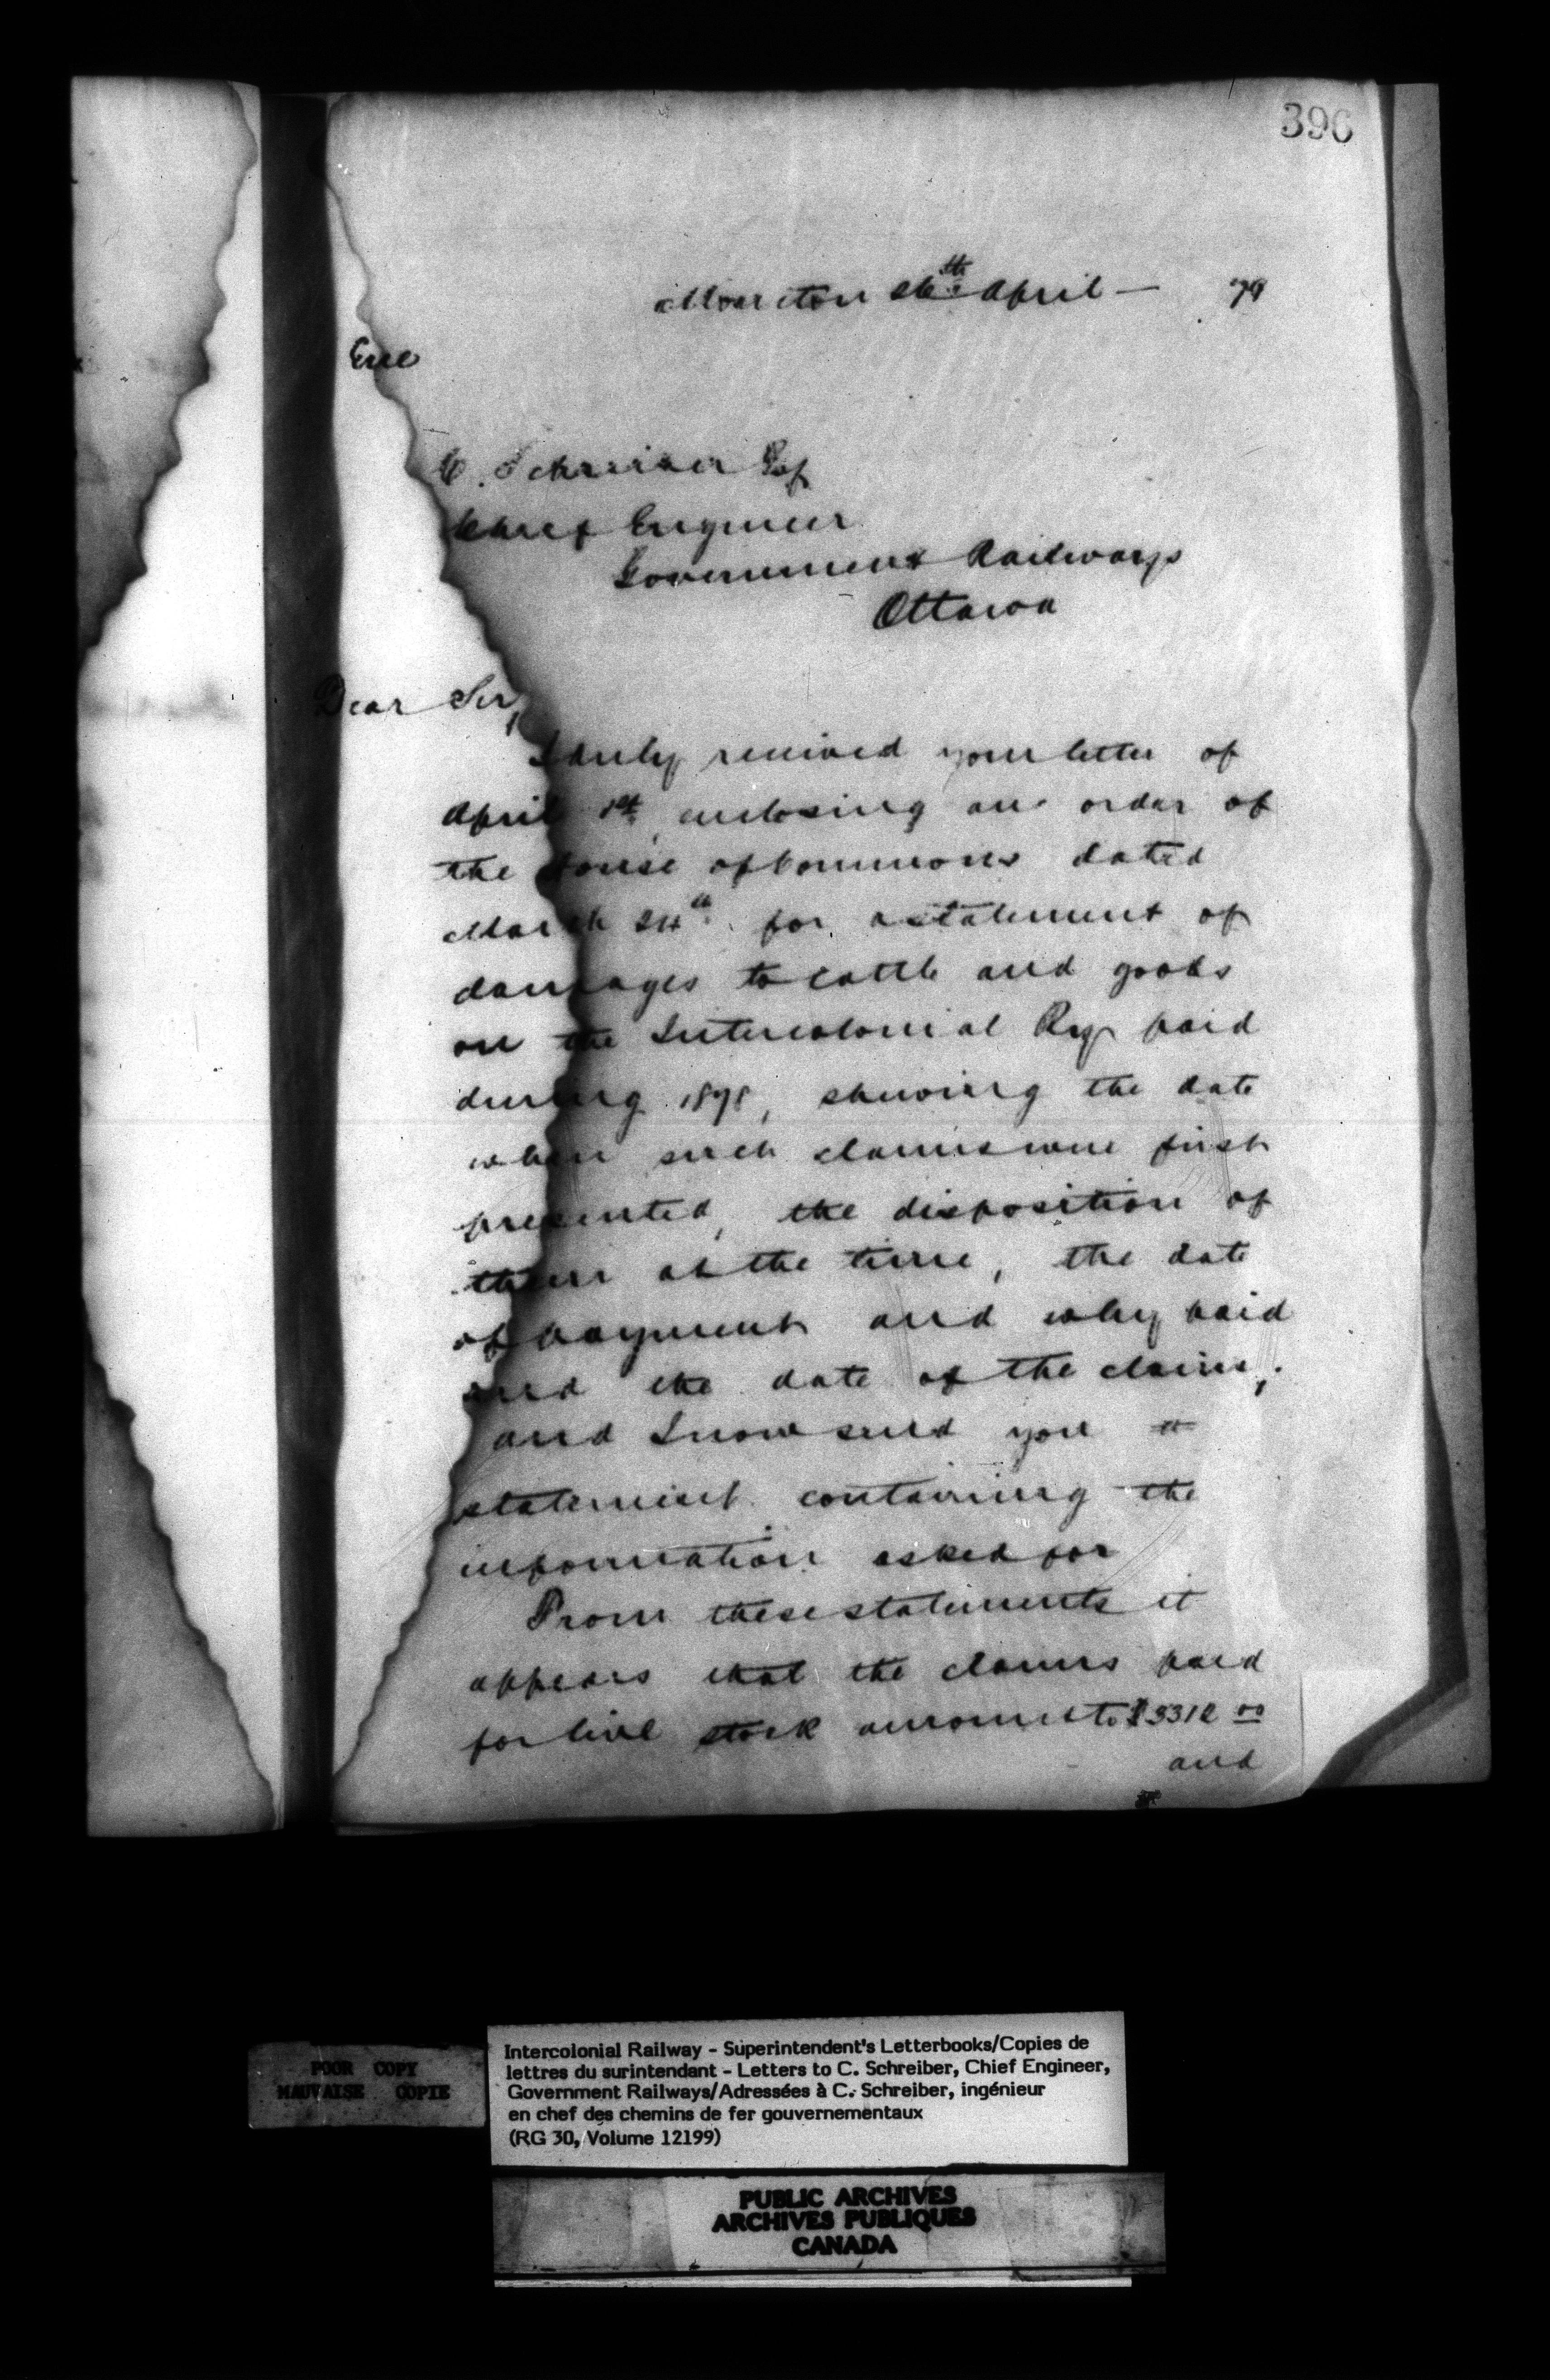 396
Moncton April — 79
Encl
C. Schreiber Esq
Chief Engineer
Government Railways
Ottawa
Dear Sir,
I duly received your letter of
April 1st, enclosing an order of
the House of Commons dated
March 24th for a statement of
damages to cattle and goods
on the Intercolonial Ry paid
during 1878, shewing the date
when such claims were first
presented, the disposition of
them at the time, the date
of payment and why paid
and the date of the claim,
and I now send you a
statement containing the
information asked for
From these statements it
appears that the claims paid
for live stock amounts to
and
POOR COPY
MAUVAISE COPIE
Intercolonial Railway - Superintendent's Letterbooks/Copies de
lettres du surintendant - Letters to C. Schreiber, Chief Engineer,
Government Railways/Adressées à C. Schreiber, ingénieur
en chef des chemins de fer gouvernementaux
(RG 30, Volume 12199)
PUBLIC ARCHIVES
ARCHIVES PUBLIQUES
CANADA